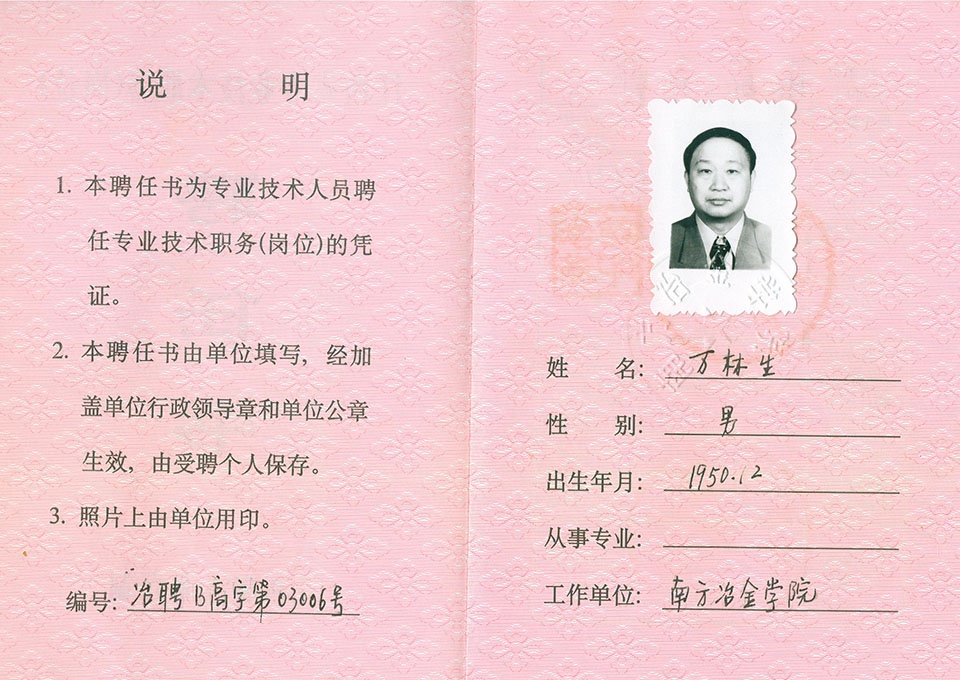 说 明
1. 本聘任书为专业技术人员聘
任专业技术职务(岗位)的凭
证。
2. 本聘任书由单位填写，经加
盖单位行政领导章和单位公章
生效，由受聘个人保存。
3. 照片上由单位用印。
编号: 冶聘B高字第03006号
姓 名: 万林生
性 别: 男
出生年月: 1950.12
从事专业:
工作单位: 南方冶金学院